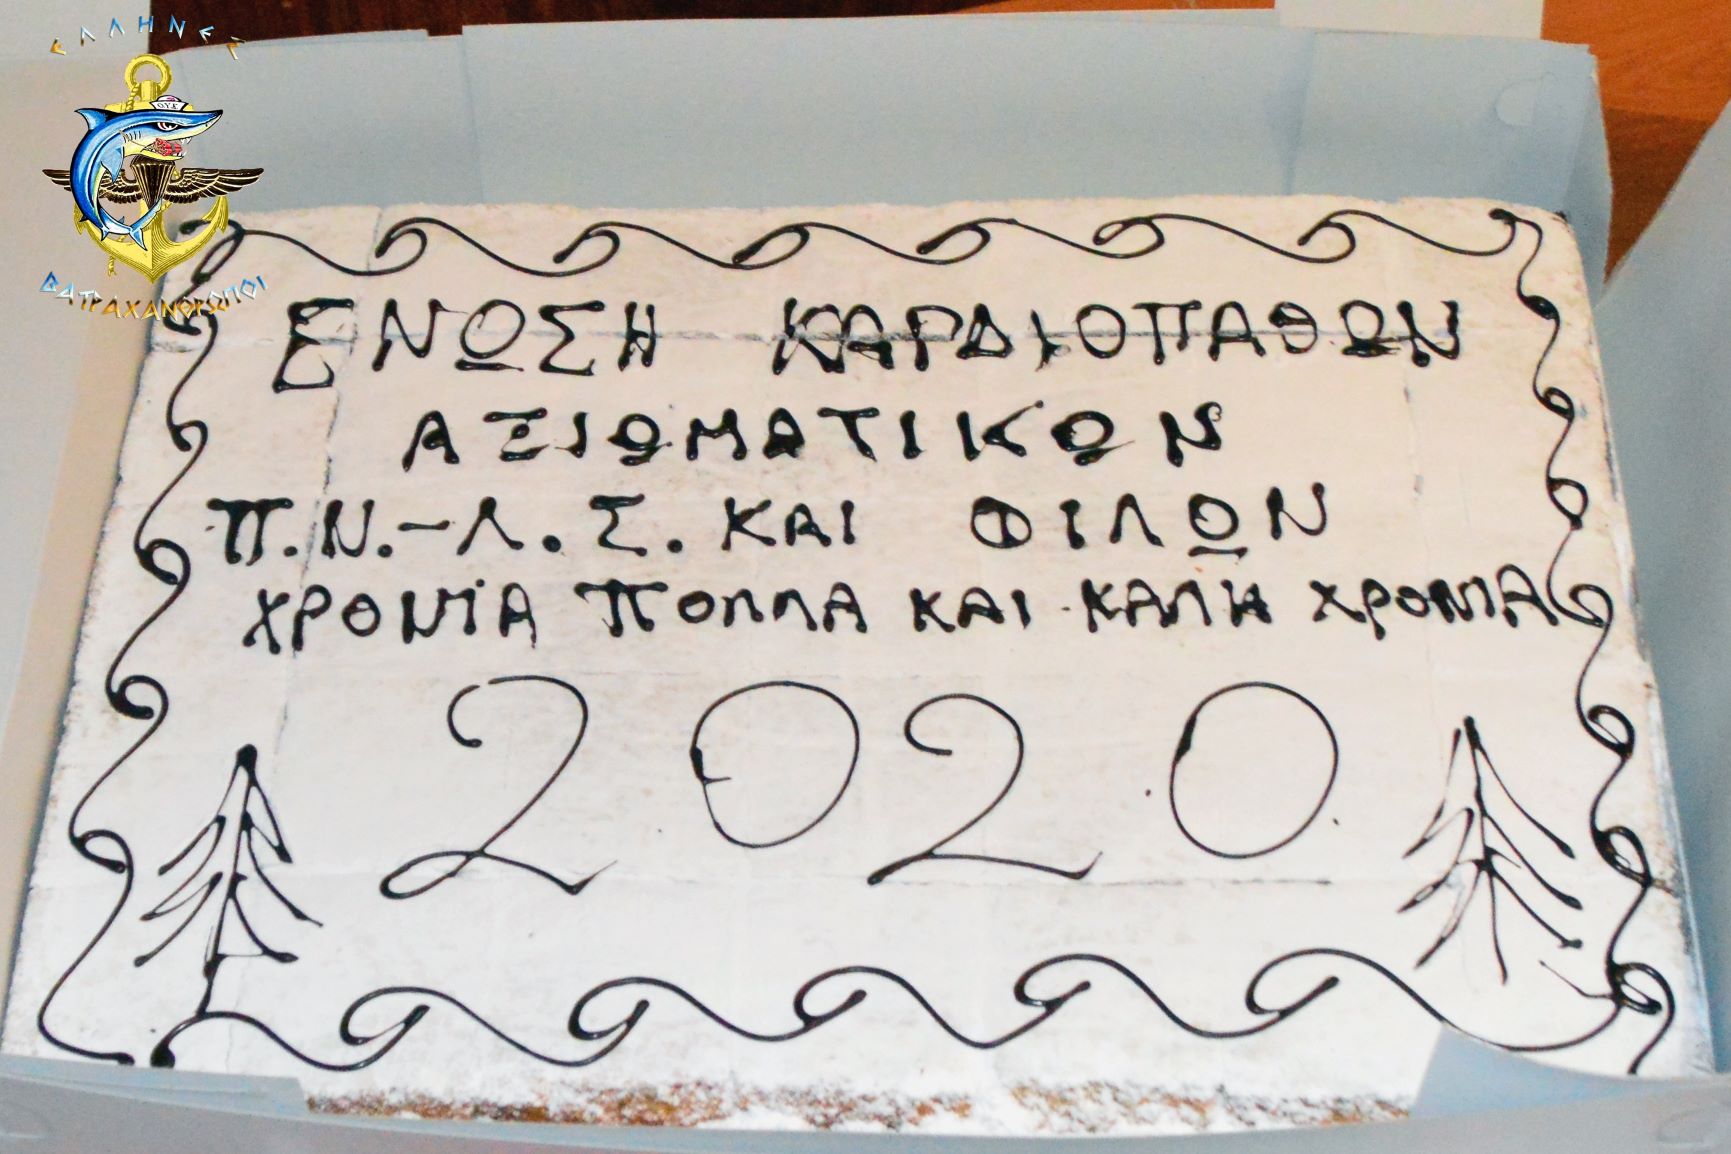 ΕΛΛΗΝΕΣ
Ο.Υ.Κ
ΒΑΤΡΑΧΑΝΘΡΩΠΟΙ
ΕΝΩΣΗ ΚΑΡΔΙΟΠΑΘΩΝ
ΑΞΙΩΜΑΤΙΚΩΝ
Π.Ν.-Λ.Σ. ΚΑΙ ΦΙΛΩΝ
ΧΡΟΝΙΑ ΠΟΛΛΑ ΚΑΙ ΚΑΛΗ ΧΡΟΝΙΑ
2020